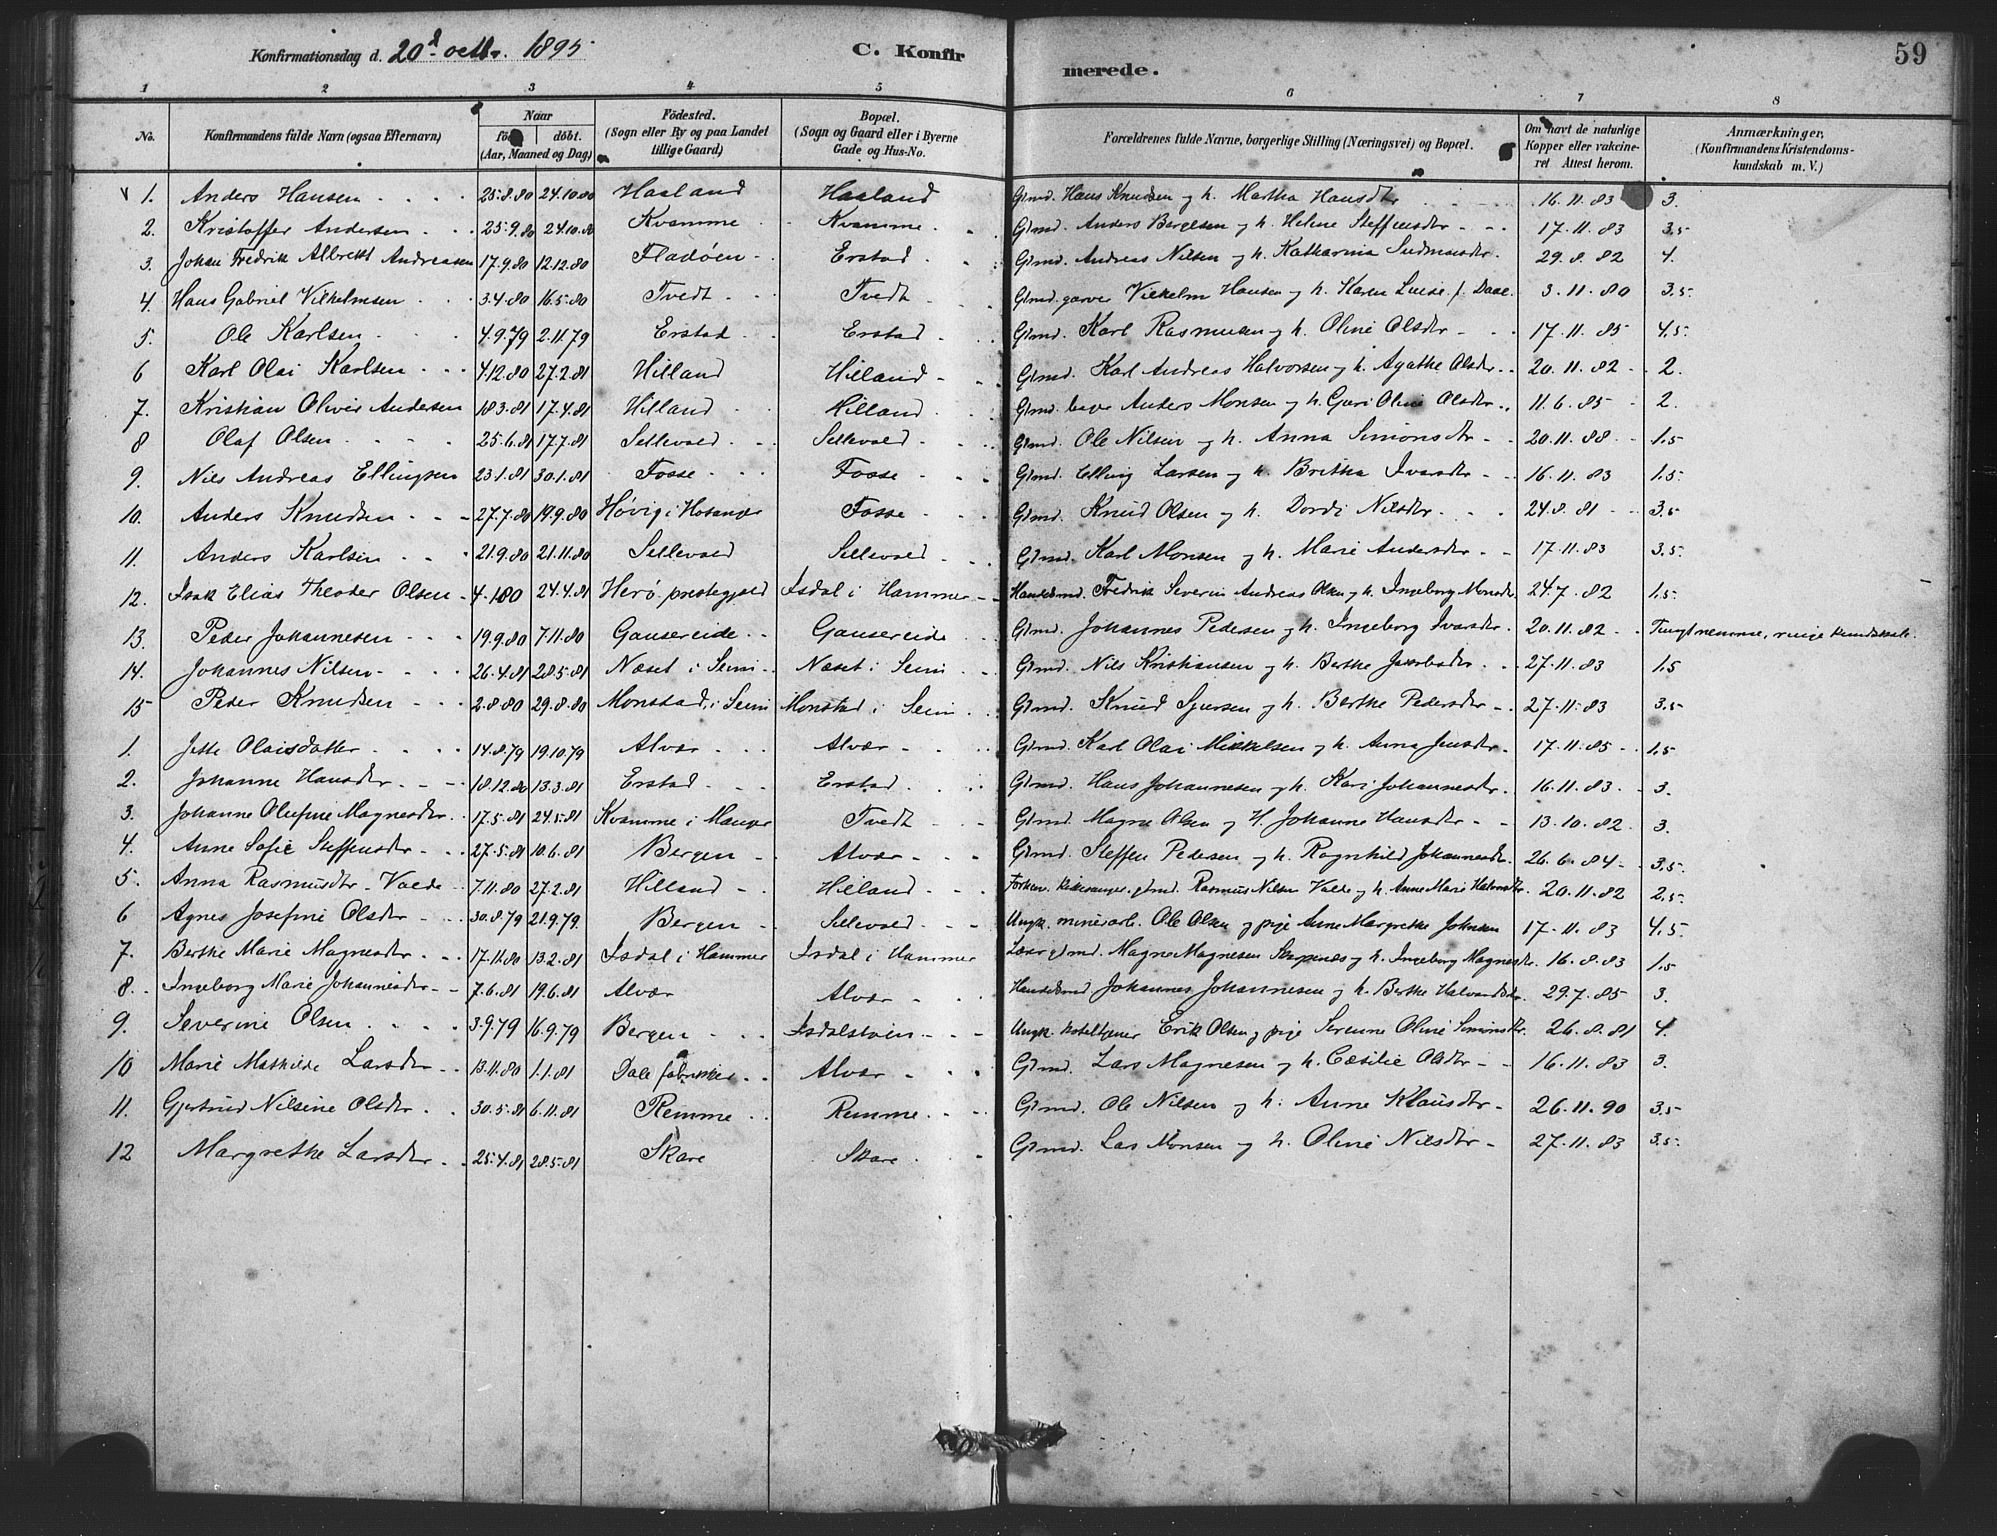 Konfirmationsdag d. 20d octbr. 1895 C. Konfirmerede. 59
1 2 3 4 5 6 7 8
No. Konfirmandens fulde Navn (ogsaa Efternavn) Naar født døbt. (Aar, Maaned og Dag) Födested. (Sogn eller By og paa Landet tillige Gaard) Bopæl. (Sogn og Gaard eller i Byerne Gade og Hus-No. Forældrenes fulde Navne, borgerlige Stilling (Næringsvei) og Bopæl. Om havt de naturlige Kopper eller vakcineret Attest herom. Anmærkninger, (Konfirmandens Kristendomskundskab m. V.)
1. Anders Hansen 25.8.80 24.10.80 Haaland Haaland Gbmd. Hans Knudsen og h. Martha Hansdtr 16.11.83 3.
2. Kristoffer Andersen 25.9.80 24.10.80 Kvamme Kvamme Gbmd. Anders Børgesen og h. Helene Steffensdtr 17.11.83 3.5
3. Johan Fredrik Albrekt Andreasen 17.9.80 12.12.80 Fladøen Erstad Gbmd. Andreas Nilsen og h. Katharina 29.8.82 4.
4. Hans Gabriel Vilhelmsen 3.4.80 16.5.80 Tvedt Tvedt Gbmd. garver Vilhelm Hansen og h. Karen Luise f. Daae 3.11.80 3.5
5. Ole Karlsen 4.9.79 2.11.79 Erstad Erstad Gbmd. Karl Rasmusen og h. Oline Olsdtr 17.11.85 4.5
6 Karl Olai Karlsen 4.12.80 27.2.81 Hilland Hilland Gbmd. Karl Andreas Halvorsen og h. Agathe Olsdtr 20.11.82 2.
7. Kristian Oliver Andersen 18.3.81 17.4.81 Hilland Hilland Gbmd. Anders Monsen og h. Guri Oline Olsdtr 11.6.85 2.
8 Olaf Olsen 25.6.81 17.7.81 Sellevold Sellevold Gbmd. Ole Nilsen og h. Anna Simonsdtr 20.11.88 1.5
9. Nils Andreas Ellingsen 23.1.81 30.1.81 Fosse Fosse Gbmd. Elling Larsen og h. Britha Ivarsdtr 16.11.83 1.5
10. Anders Knudsen 27.7.80 19.9.80 Høvig i Hosanger Fosse Gbmd. Knud Olsen og h. Dordi Nilsdtr 24.8.81 3.5
11. Anders Karlsen 21.9.80 21.11.80 Sellevold Sellevold Gbmd. Karl Monsen og h. Marie Andersdtr 17.11.83 3.5
12. Isak Elias Theodor Olsen 4.1.80 24.4.81 Herø prestegjeld Isdal i Hammer Handelsmd. Fredrik Severin Andreas Olsen og h. Ingeborg Monsdtr 24.7.82 1.5
13. Peder Johannesen 19.9.80 7.11.80 Gausereide Gausereide Gbmd. Johannes Pedersen og h. Ingeborg Ivarsdtr 20.11.82 Tungt nemme, ringe kundskab.
14. Johannes Nilsen 26.4.81 28.5.81 Næset i Seim Næset i Seim Gbmd. Nils Kristiansen og h. Berthe Jakobsdtr 27.11.83 1.5
15 Peder Knudsen 2.8.80 29.8.80 Monstad i Seim Monstad i Seim Gbmd. Knud Sjursen og h. Berthe Pedersdtr 27.11.83 3.5
1. Jette Olaisdatter 14.8.79 19.10.79 Alvær Alvær Gbmd. Karl Olai Mikkelsen og h. Anna Jensdtr 17.11.85 1.5
2. Johanne Hansdtr 18.12.80 13.3.81 Erstad Erstad Gbmd. Hans Johannesen og h. Kari Johannesdtr 16.11.83 3.
3. Johanne Olefine Magnesdtr 17.5.81 24.5.81 Kvamme i Manger Tvedt Gbmd. Magne Olsen og H. Johanne Hansdtr 13.10.82 3.
4. Anne Sofie Steffensdtr 27.5.81 10.6.81 Bergen Alvær Gbmd. Steffen Pedersen og h. Ragnhild Johannesdtr 26.6.84 3.5
5. Anna Rasmusdtr Valde 7.11.80 27.2.81 Hilland Hilland Forhen. kirkesanger, gbmd. Rasmus Nilsen Valde og h. Anne Marie Halvorsdtr 20.11.82 2.5
6 Agnes Josefine Olsdtr 30.8.79 21.9.79 Bergen Sellevold Ungk. minérarb. Ole Olsen og pige Anne Margrethe Johnsen 17.11.83 4.5
7. Berthe Marie Magnesdtr 17.11.80 13.2.81 Isdal i Hammer Isdal i Hammer Lærer gbmd. Magne Magnesen og h. Ingeborg Magnesdtr 16.8.83 1.5
8. Ingeborg Marie Johannesdtr 7.6.81 19.6.81 Alvær Alvær Handelsmd Johannes Johannesen og h. Berthe Halvorsdtr 29.7.85 3.
9. Severine Olsen 3.9.79 16.9.79 Bergen Isdalstøen Ungk. hoteltjener Erik Olsen og pige Serenne Oline Simonsdtr 26.8.81 4.
10 Marie Mathilde Larsdtr 13.11.80 1.1.81 Dale fabrikker Alvær Gbmd. Lars Magnesen og h. Cæsilie Olsdtr 16.11.83 3.
11. Gjertrud Nilsine Olsdtr 30.5.81 6.11.81 Remme Remme Gbmd. Ole Nilsen og h. Anne Klausdtr 26.11.90 3.5
12 Margrethe Larsdtr 25.4.81 28.5.81 Skare Skare Gbmd. Lars Monsen og h. Oline Nilsdtr 27.11.83 3.5